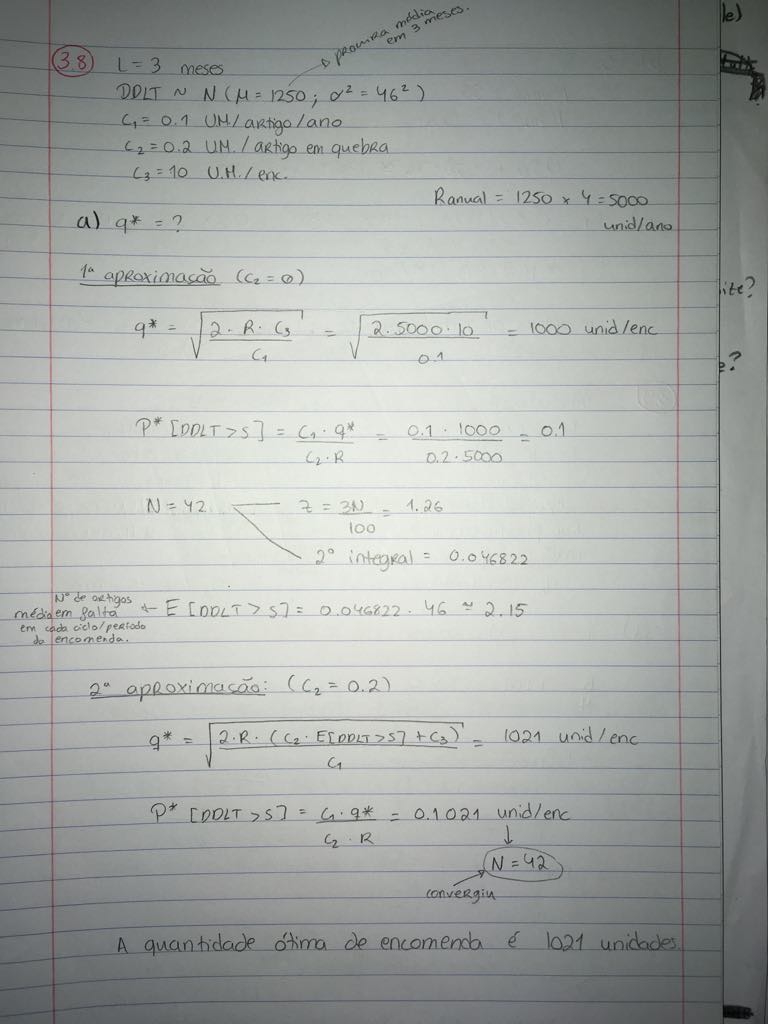 3.8 L = 3 meses
procura média em 3 meses.
DDLT ~ N (μ = 1250 ; σ² = 46²)
C₁ = 0.1 UM/artigo/ano
C₂ = 0.2 UM./artigo em quebra
C₃ = 10 U.M./enc.
Ranual = 1250 × 4 = 5000
unid/ano
a) q* = ?
1ª aproximação (C₂ = 0)
q* = √(2 · R · C₃ / C₁) = √(2 · 5000 · 10 / 0.1) = 1000 unid/enc
P* [DDLT > S] = C₁ · q* / C₂ · R = 0.1 · 1000 / 0.2 · 5000 = 0.1
N = 42 z = 3N / 100 = 1.26
2º integral = 0.046822
Nº de artigos
média em falta
em cada ciclo/período
da encomenda.
E [DDLT > S] = 0.046822 · 46 ≃ 2.15
2ª aproximação: (C₂ = 0.2)
q* = √(2 · R · (C₂ · E[DDLT > S] + C₃) / C₁) = 1021 unid/enc
P* [DDLT > S] = C₁ · q* / C₂ · R = 0.1021 unid/enc
N = 42
convergiu
A quantidade ótima de encomenda é 1021 unidades.
le)
ite?
e?